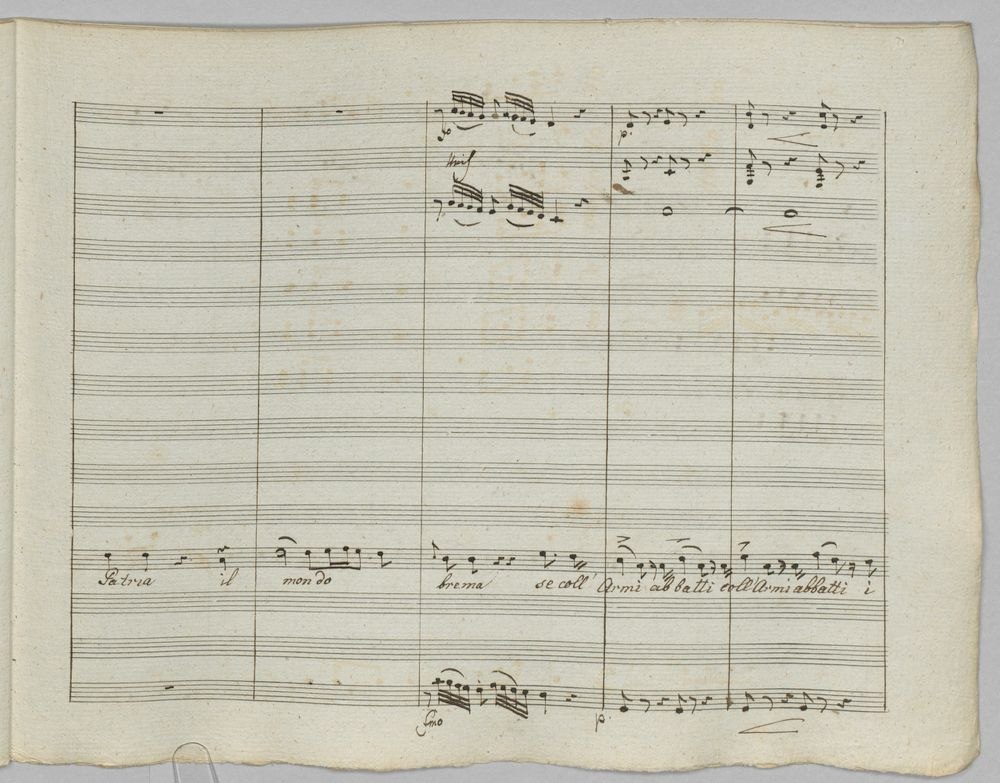 fo
Unis
p.
Patria il mondo brema se coll' Armi abbatti coll' Armi abbatti i
fmo
p.